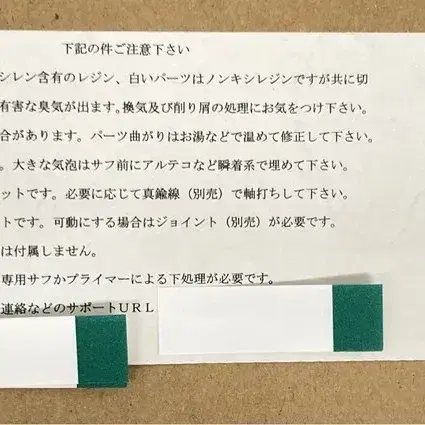 下記の件ご注意下さい
シレン含有のレジン、白いパーツはノンキシレジンですが共に切
有害な臭気が出ます。換気及び削り屑の処理にお気をつけ下さい。
合があります。パーツ曲がりはお湯などで温めて修正して下さい。
。大きな気泡はサフ前にアルテコなど瞬着系で埋めて下さい。
ットです。必要に応じて真鍮線（別売）で軸打ちして下さい。
トです。可動にする場合はジョイント（別売）が必要です。
は付属しません。
専用サフかプライマーによる下処理が必要です。
連絡などのサポートＵＲＬ